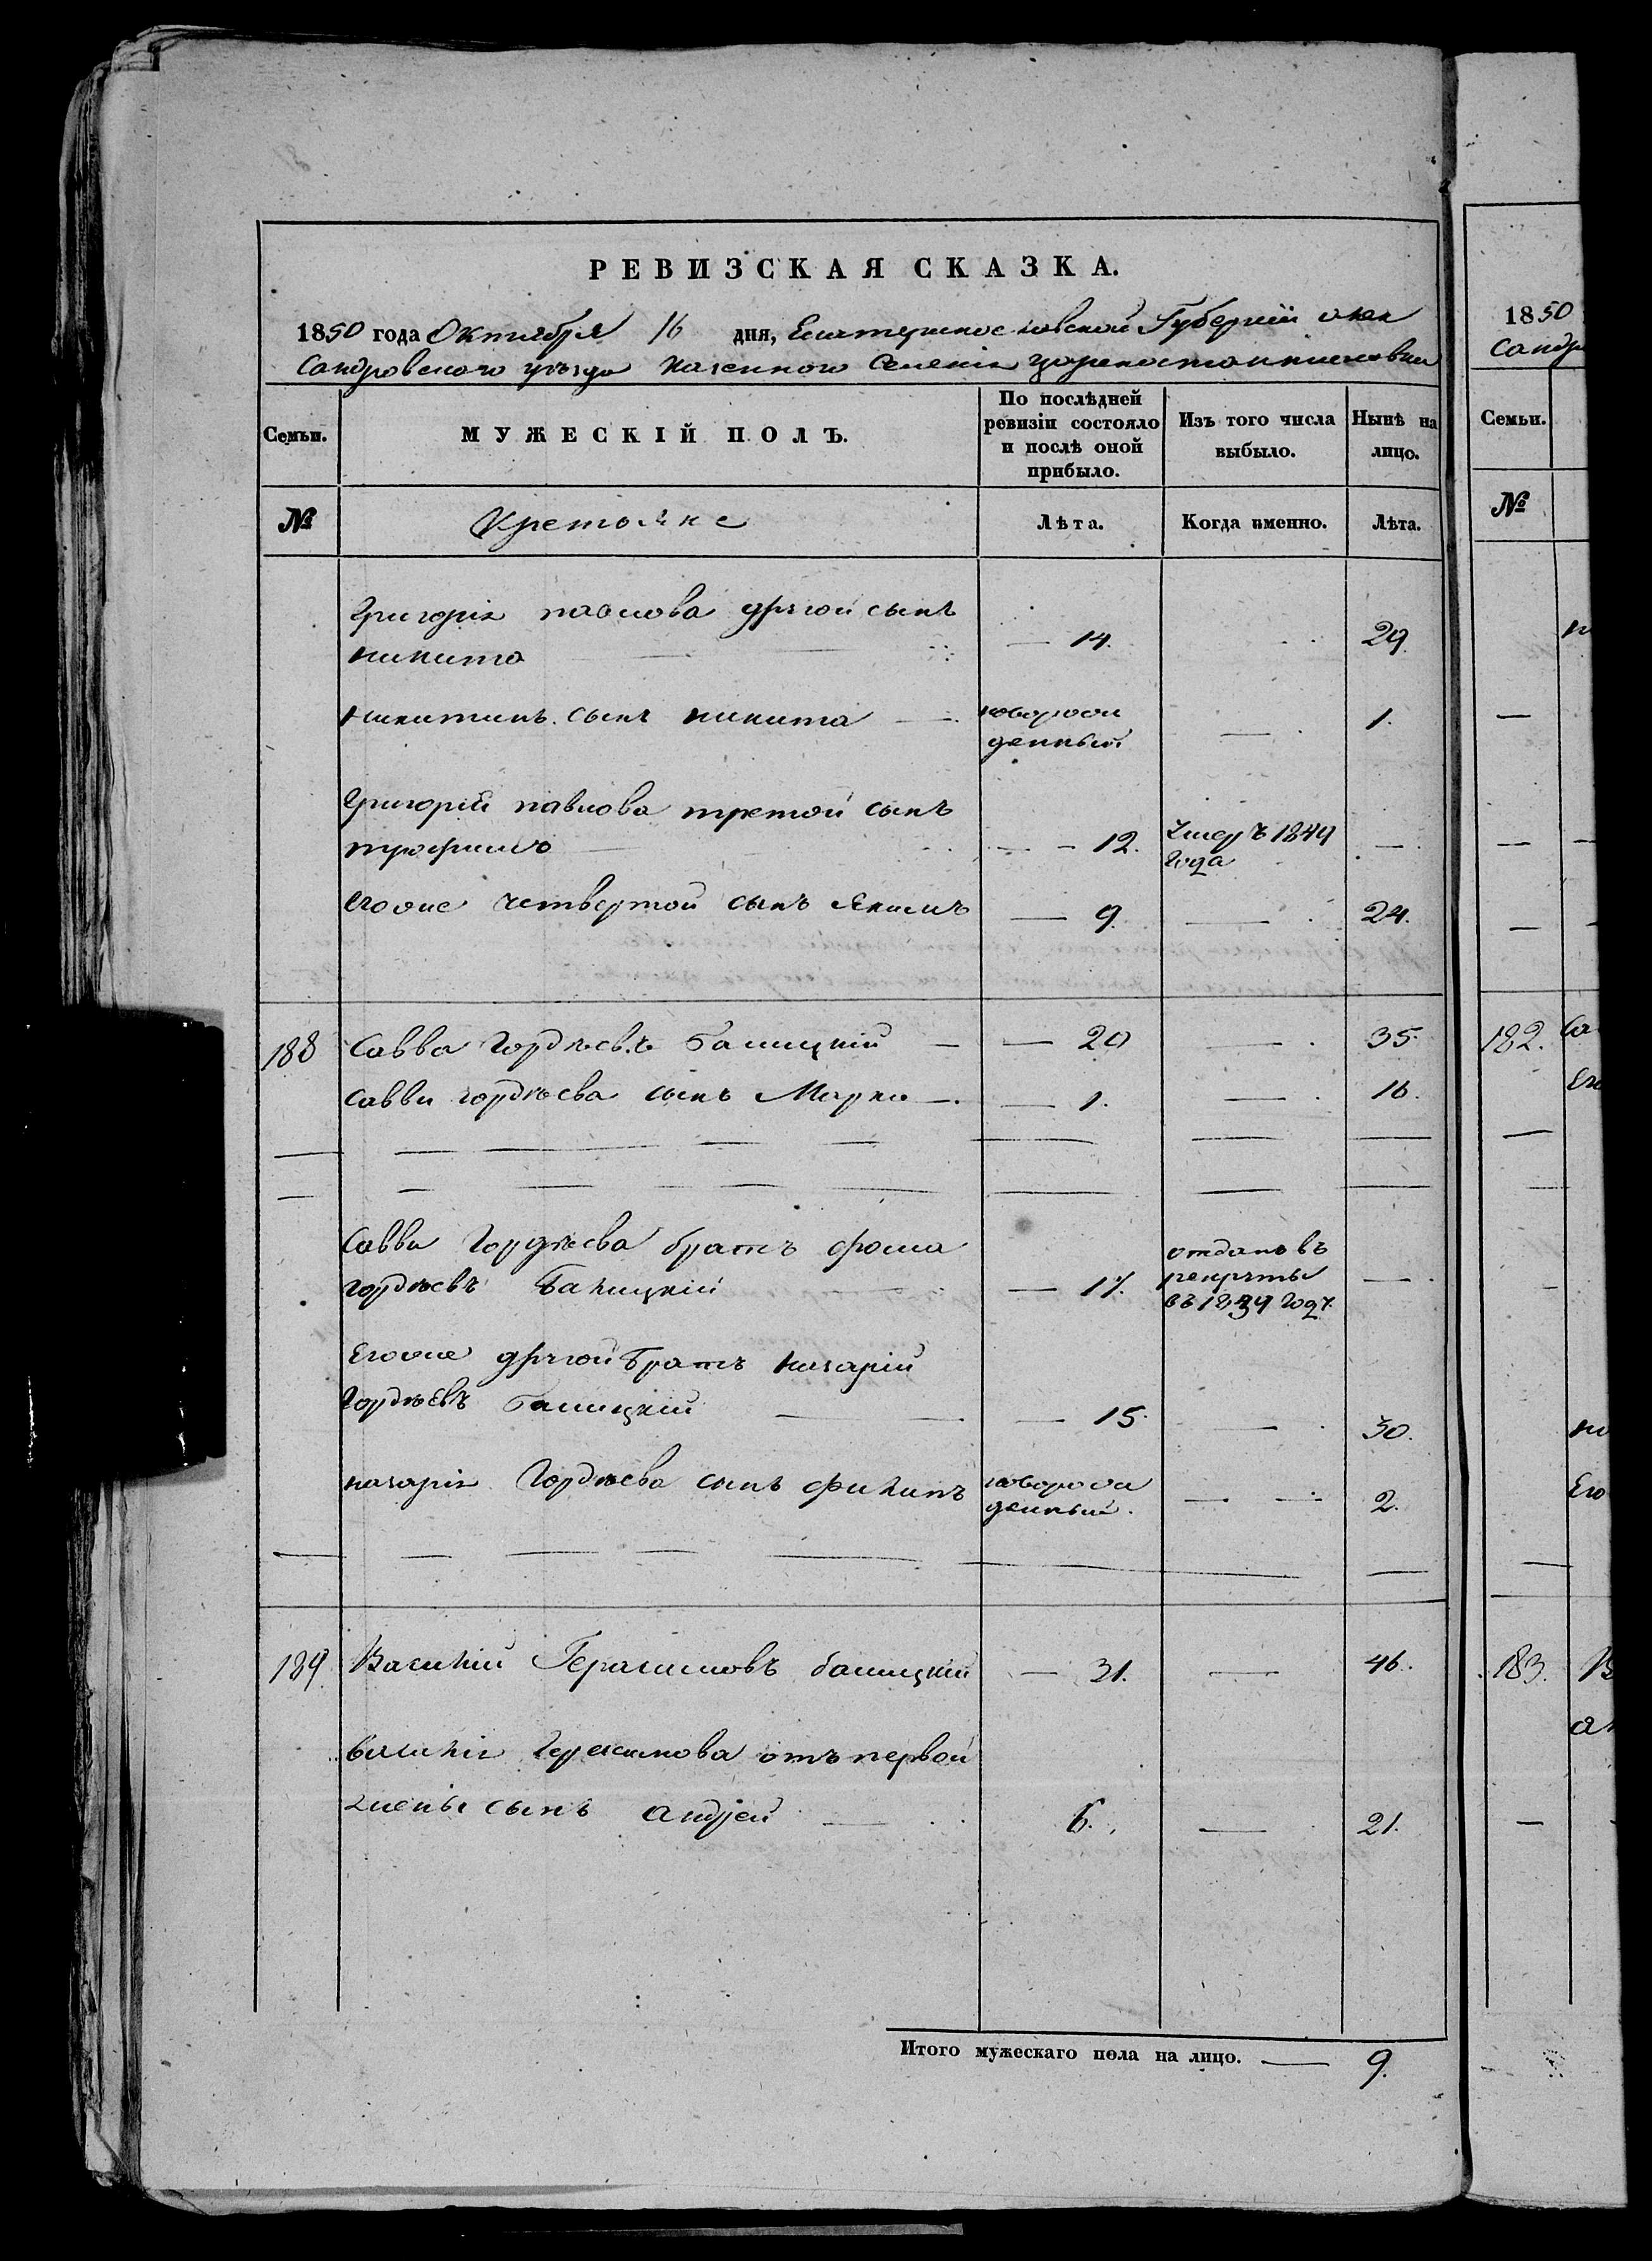 РЕВИЗСКАЯ СКАЗКА.
1850 года Октября 16 дня, Екатеринославской Губерніи Алек
сандровского уѣзда казенного Селенія Цареконстантиновки
Семьи. МУЖЕСКІЙ ПОЛЪ. По послѣдней ревизіи состояло и послѣ оной прибыло. Изъ того числа выбыло. Нынѣ на лицо.
№ Крестьяне Лѣта. Когда именно. Лѣта.
Григорія павлова другой сынъ
никита — 14. 29.
никитинъ сынъ никита — новорож
денный — 1.
Григорій павлова третой сынъ
трофимъ — 12. Умеръ 1849
года —
Егоже четвертой сынъ Якимъ — 9. — 24.
188 Савва Гордѣевъ Балицкій — 20 — 35.
Савви гордѣева сынъ Марко — 1. — 16.
Савви Гордѣева братъ фома
гордѣевъ Балицкій — 17. отданъ въ
рекруты
въ 1834 году. —
Егоже другой братъ назарій
Гордѣевъ Балицкій — 15. — 30.
назарія Гордѣева сынъ филипъ новорож
денный. — 2.
189. Василій Герасимовъ балицкій — 31. — 46.
василія Герасимова отъ первой
жены сынъ андрей — 6. — 21.
Итого мужескаго пола на лицо. — 9.
1850
Сандр
Семьи.
№
182. Са
Его
Его
183. В